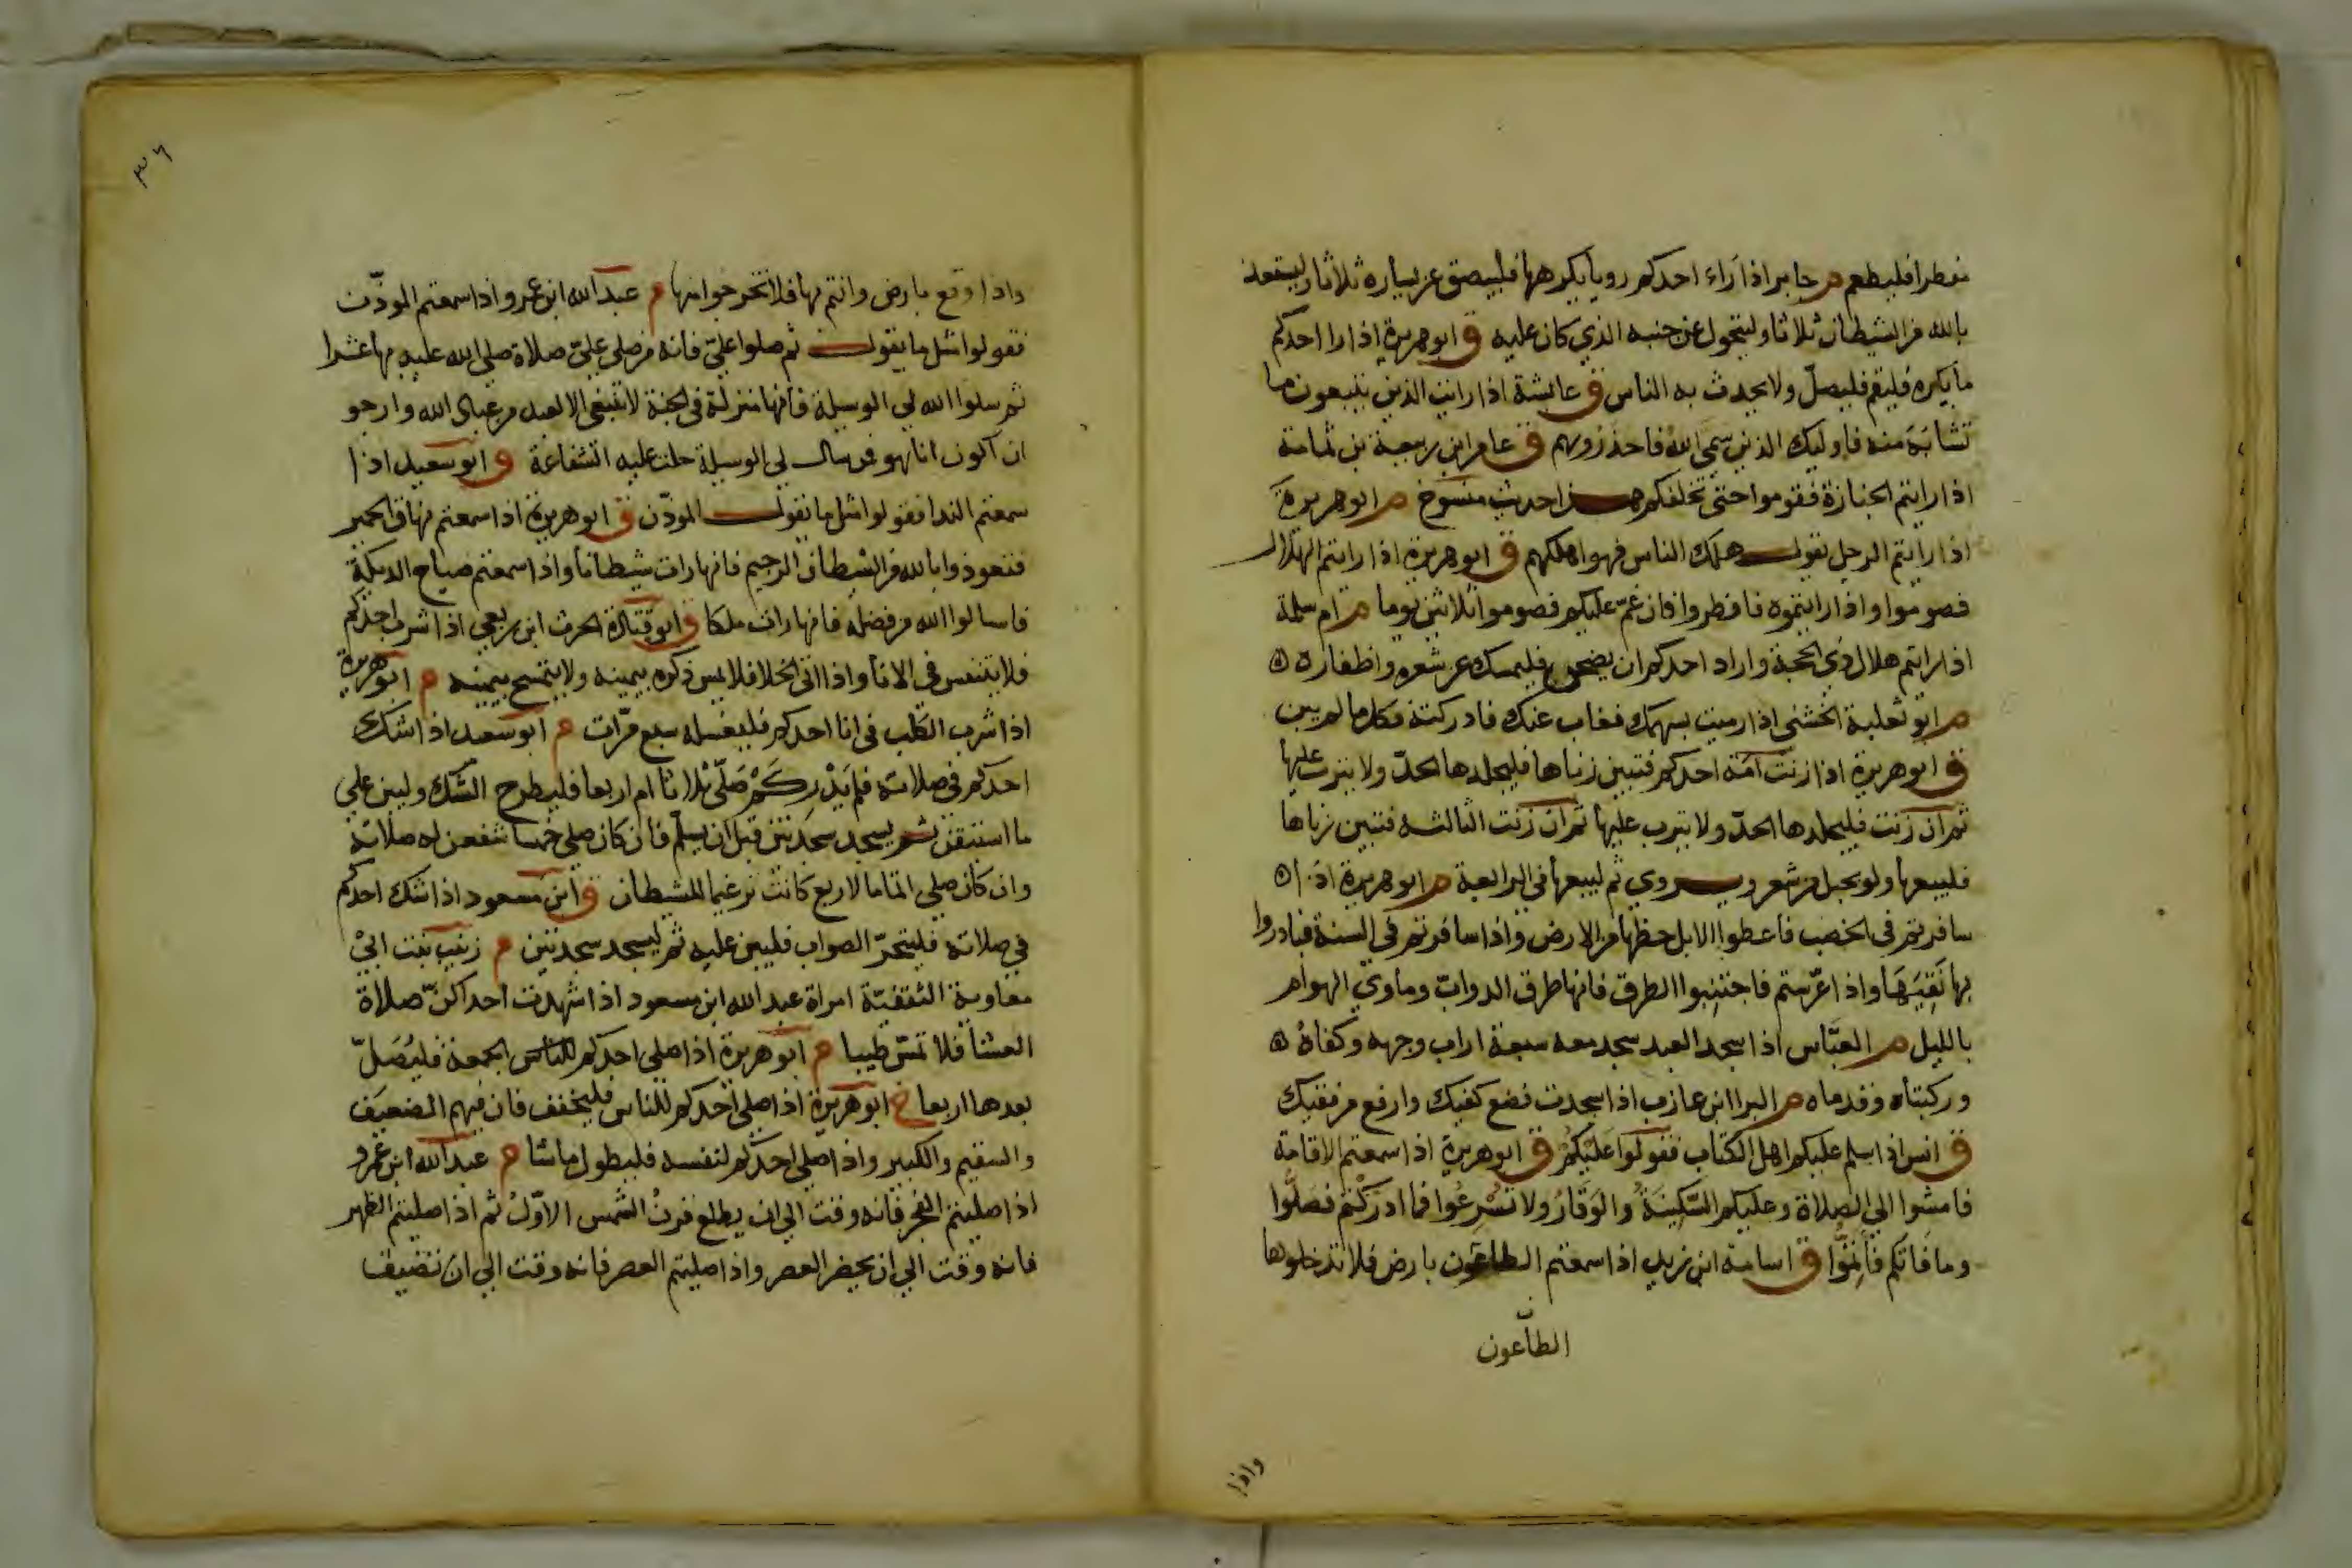 مفطرا فليطعم م جابر اذا راء احدكم رويا يكرهها فليبصق عن يساره ثلاثا وليستعذ
بالله من الشيطان ثلاثا وليتحول عن جنبه الذي كان عليه ق ابو هريرة اذا راا احدكم
ما يكره فليقم فليصل ولا يحدث به الناس ق عايشة اذا رايت الذين يتبعون ما
تشابه منه فاوليك الذين سمى الله فاحذروهم ق عامر ابن ربيعة بن ثمامة
اذا رايتم الجنازة فقوموا حتى تخلفكم هذا حديث منسوخ م ابو هريرة
اذا رايتم الرجل يقول هلك الناس فهو اهلكهم ق ابو هريرة اذا رايتم الهلال
فصوموا واذا رايتموه فافطروا فان غمّ عليكم فصوموا ثلاثين يوما م ام سلمة
اذا رايتم هلال ذي الحجة واراد احدكم ان يضحي فليمسك عن شعره واظفاره ه
م ابو ثعلبة الخشني اذا رميت بسهمك فغاب عنك فادركته فكله ما لم يبن
ق ابو هريرة اذا زنت امة احدكم فتبين زناها فليجلدها الحدّ ولا يثرب عليها
ثم ان زنت فليجلدها الحدّ ولا يثرب عليها ثم ان زنت الثالثة فتبين زناها
فليبيعها ولو بحبل من شعر ويروي ثم ليبعها في الرابعة م ابو هريرة اذا ه
سافرتم في الخصب فاعطوا الابل حظها من الارض واذا سافرتم في السنة فبادروا
بها نقيها واذا عرّستم فاجتنبوا الطرق فانها طرق الدواب وماوي الهوام
بالليل م العبّاس اذا سجد العبد سجد معه سبعة اراب وجهه وكفاه ه
وركبتاه وقدماه م البرا ابن عازب اذا سجدت فضع كفيك وارفع مرفقيك
ق انس اذا سلم عليكم اهل الكتاب فقولوا عليكم ق ابو هريرة اذا سمعتم الاقامة
فامشوا الي الصلاة وعليكم السّكينة والوقار ولا تسرعوا فما ادركتم فصلّوا
وما فاتكم فاتمّوا ق اسامة ابن زيد اذا سمعتم الطاعون بارض فلا تدخلوها
الطاعون
واذا
٣٦
واذا وقع بارض وانتم بها فلا تخرجوا منها م عبد الله ابن عمرو اذا سمعتم الموذّن
فقولوا مثل ما يقول ثم صلوا عليّ فانه من صلي عليّ صلاة صلي الله عليه بها عشرا
ثم سلوا الله لي الوسيلة فانها منزلة في الجنة لا تنبغي الا لعبد من عباد الله وارجو
ان اكون انا هو فمن سال لي الوسيلة حلت عليه الشفاعة ق ابو سعيد اذا
سمعتم الندا فقولوا مثل ما يقول الموذّن ق ابو هريرة اذا سمعتم نهاق الحمير
فتعوذوا بالله من الشيطان الرجيم فانها رات شيطانا واذا سمعتم صياح الديكة
فاسالوا الله من فضله فانها رات ملكا ق ابو قتادة الحرث ابن ربعي اذا شرب احدكم
فلا يتنفس في الانا واذا اتى الخلا فلا يمس ذكره بيمينه ولا يتمسح بيمينه م ابو هريرة
اذا شرب الكلب في انا احدكم فليغسله سبع مرّات م ابو سعيد اذا شك
احدكم في صلاته فلم يدر كم صلّى ثلاثا ام اربعا فليطرح الشّك وليبن علي
ما استيقن ثم يسجد سجدتين قبل ان يسلّم فان كان صلي خمسا شفعن له صلاته
وان كان صلي اتماما لاربع كانت ترغيما للشيطان ق ابن مسعود اذا شك احدكم
في صلاته فليتحرّ الصواب فليبن عليه ثم ليسجد سجدتين م زينب بنت ابي
معاوية الثقفيّة امراة عبد الله ابن مسعود اذا شهدت احداكنّ صلاة
العشا فلا تمسّ طيبا م ابو هريرة اذا صلي احدكم للناس الجمعة فليصلّ
بعدها اربعا خ ابو هريرة اذا صلي احدكم للناس فليخفف فان فيهم الضعيف
والسقيم والكبير واذا صلي احدكم لنفسه فليطول ما شا م عبد الله ابن عمرو
اذا صليتم الفجر فانه وقت الي ان يطلع قرن الشمس الاوّل ثم اذا صليتم الظهر
فانه وقت الي ان يحضر العصر واذا صليتم العصر فانه وقت الي ان تضيف